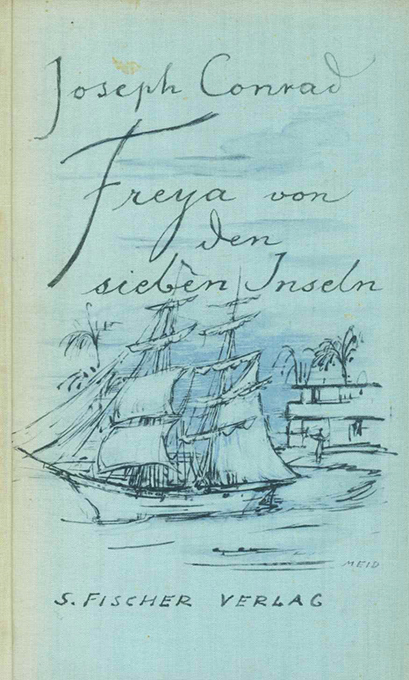 Joseph Conrad
Freya von
den
sieben Inseln
MEID
S. FISCHER VERLAG